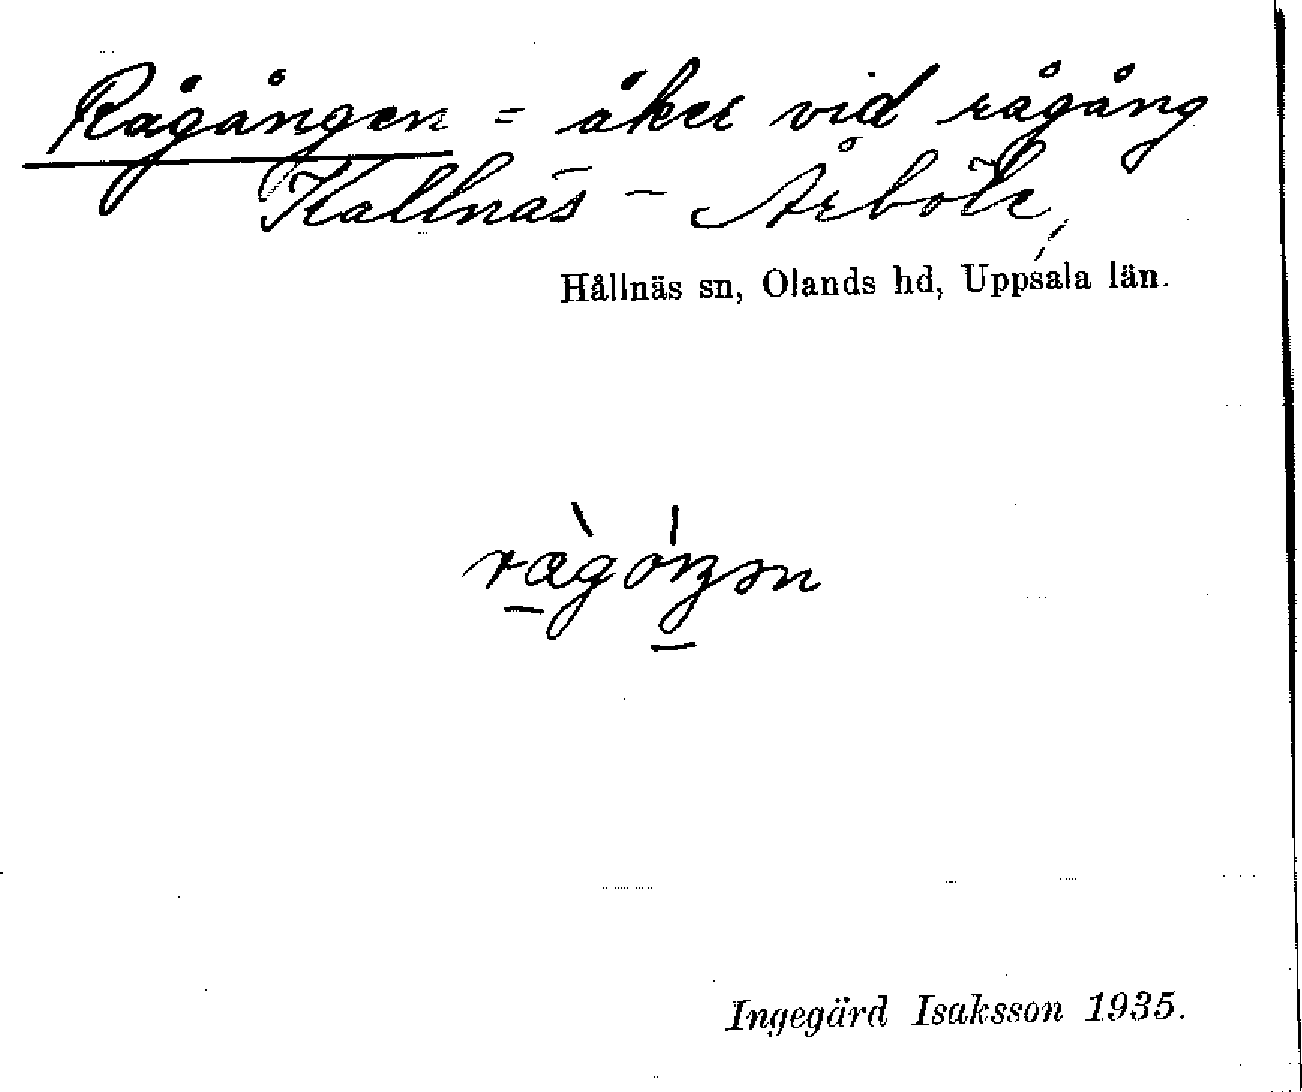 Rågången = åker vid rågång
Kallnäs - Årböle,
Hållnäs sn, Olands hd, Uppsala län.
Ingegärd Isaksson 1935.